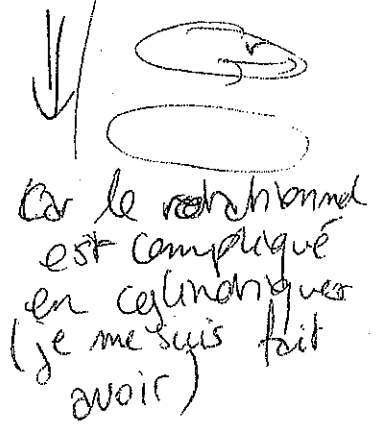 Car le rotationnel
est compliqué
en cylindriques
(je me suis fait
avoir)